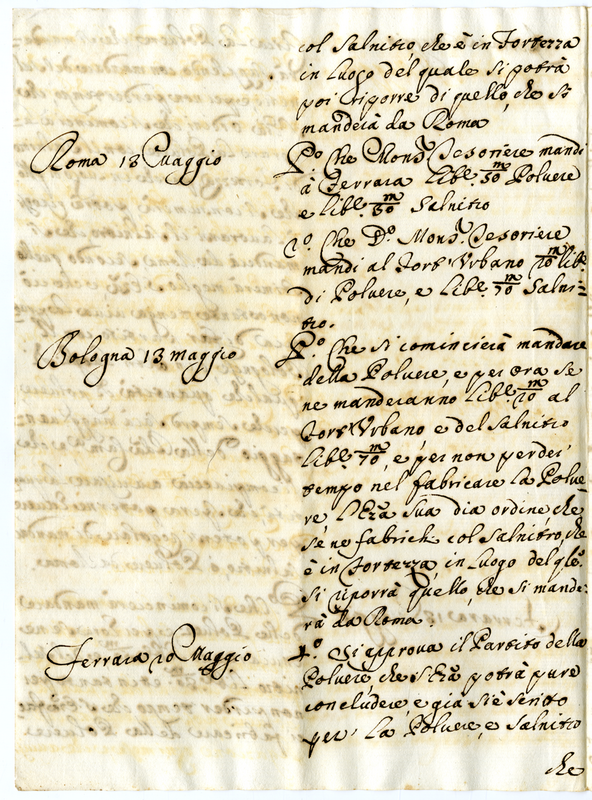 col Salnitro, che è in Fortezza
in Luogo del quale si potrà
poi riporre di quello, che si
manderà da Roma
Roma 13 Maggio
P.º Che Mons.r Tesoriere mandi
à Ferrara Libe. m/50 Poluere
e Libe. m/50 Salnitro
2.º Che D.º Mons.r Tesoriere
mandi al Fort'Vrbano m/20 libe.
di Poluere, e Libe. m/70 Salni=
tro.
Bologna 13 maggio
P.º Che si comincierà mandare
della Poluere, e per ora se
ne manderanno Libe. m/20 al
Fort'Vrbano e del Salnitro
Libe. m/70, e per non perder
tempo nel fabricare la Polue=
re, l'Eza Sua dia ordine, che
se ne fabrichi col Salnitro, che
è in Fortezza, in Luogo del qle.
Si riporrà quello, che Si mande=
rà da Roma.
Ferrara 20 Maggio
Si approua il Partito della
Poluere, che S. Eza potrà pure
concludere, e già Si è scritto
per La Poluere, e Salnitro
che